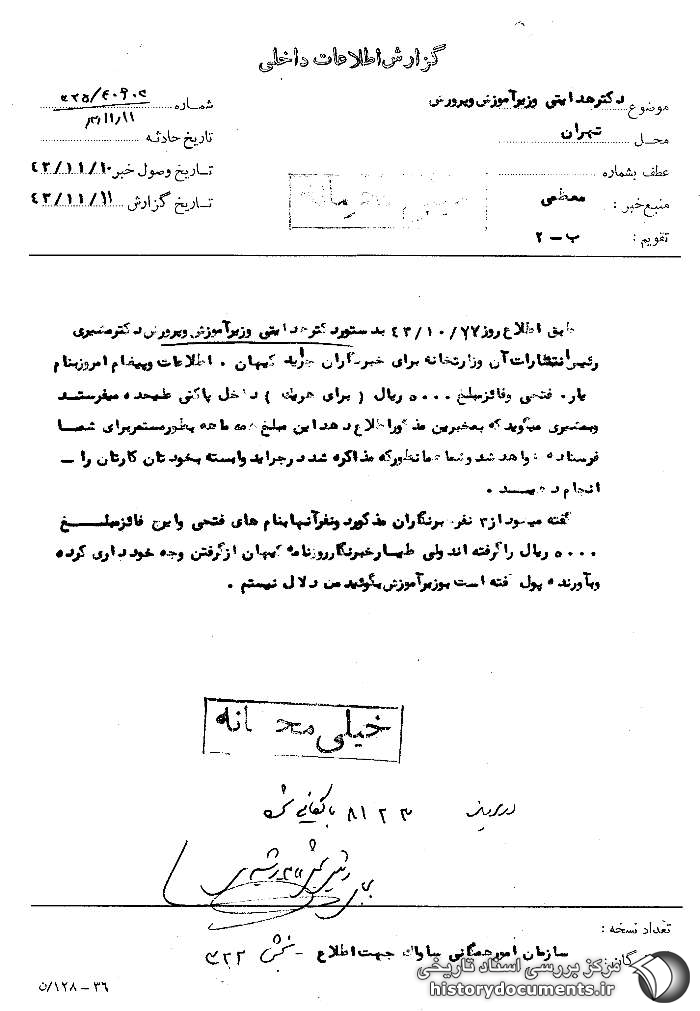 گزارش اطلاعات داخلی
موضوع دکتر هدایتی وزیر آموزش و پرورش
شماره ۳۲۵/۴۰۹۰۲
۳/۱۱/۱۱
محل تهران
تاریخ حادثه
عطف بشماره
تاریخ وصول خبر ۴۳/۱۱/۱۰
منبع خبر : معظمی
تاریخ گزارش ۴۳/۱۱/۱۱
تقویم : ب - ۲
طبق اطلاع روز ۴۳/۱۰/۲۷ بدستور دکتر هدایتی وزیر آموزش و پرورش دکتر مشیری
رئیس انتشارات آن وزارتخانه برای خبرنگاران جراید کیهان . اطلاعات و پیغام امروز بنام
فتحی و فائز مبلغ ۵۰۰۰ ریال ( برای هریک ) داخل پاکتی علیحده میفرستد
و مشیری میگوید که بمخبرین مذکور اطلاع دهد این مبلغ همه ماهه بطور مستمر برای شما
فرستاده خواهد شد و شما همانطور که مذاکره شد در جراید وابسته بخودتان کارتان را -
انجام دهید .
گفته میشود از ۳ نفر خبرنگاران مذکور دو نفر آنها بنام های فتحی و ایرج فائز مبلغ
۵۰۰۰ ریال را گرفته اند ولی طیار خبرنگار روزنامه کیهان از گرفتن وجه خودداری کرده
و بآورنده پول گفته است بوزیر آموزش بگوئید من دلال نیستم .
خیلی محرمانه
۸۱۲۳
تعداد نسخه :
سازمان امور همگانی ساواک جهت اطلاع - بخش ۳۲۲
گیرندگان
۳۶ - ۱۲۸/ن
مرکز بررسی اسناد تاریخی
historydocuments.ir